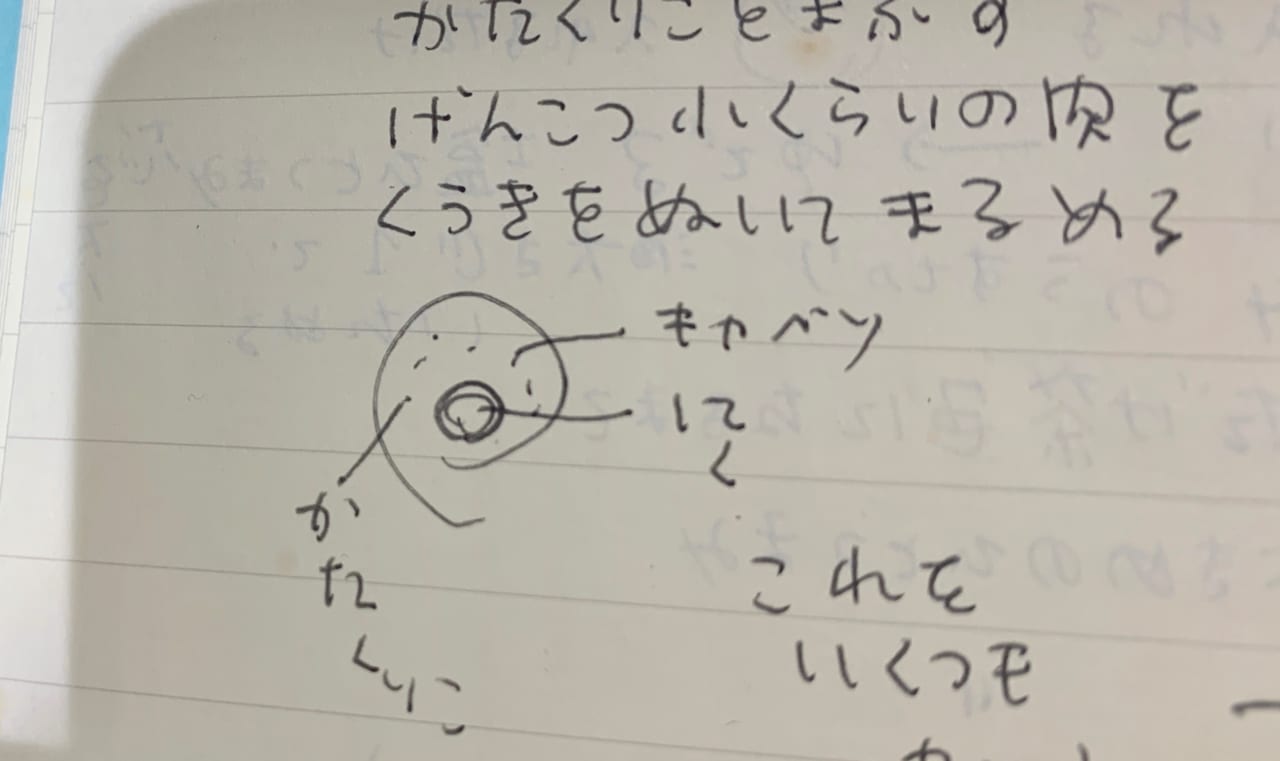 かたくりこをまぶす
げんこつ小くらいの肉を
くうきをぬいてまるめる
キャベツ
にく
かたくりこ
これを
いくつも